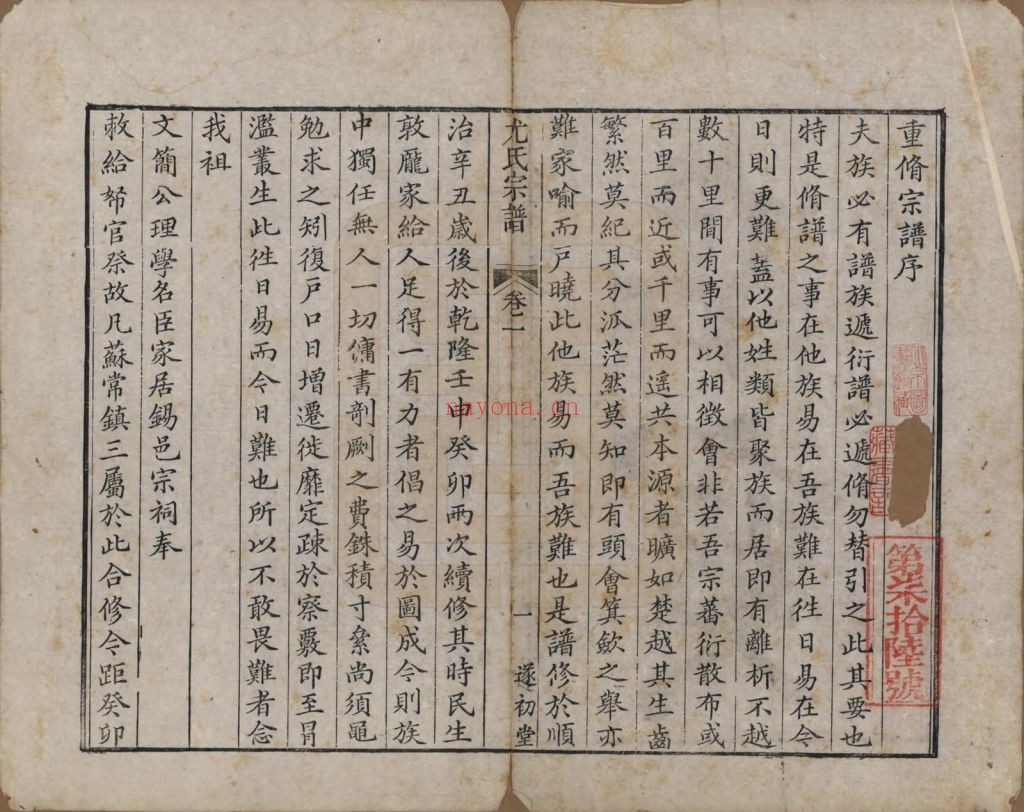 重脩宗譜序
夫族必有譜族遞衍譜必遞脩勿替引之此其要也
特是脩譜之事在他族易在吾族難在徃日易在今
日則更難蓋以他姓類皆聚族而居即有離析不越
數十里間有事可以相徵會非若吾宗蕃衍散布或
百里而近或千里而遥共本源者曠如楚越其生齒
繁然莫紀其分派茫然莫知即有頭會箕歛之舉亦
難家喻而戸曉此他族易而吾族難也是譜修於順
尤氏宗譜 卷二 一 遂初堂
治辛丑歲後於乾隆壬申癸卯兩次續修其時民生
敦龐家給人足得一有力者倡之易於圖成今則族
中獨任無人一切傭書剞劂之費銖積寸絫尚須黽
勉求之矧復戸口日增遷徙靡定疎於察覈即至冐
濫叢生此徃日易而今日難也所以不敢畏難者念
我祖
文簡公理學名臣家居錫邑宗祠奉
敕給帑官祭故凡蘇常鎮三屬於此合修今距癸卯
第柒拾陸號
nayona.cn